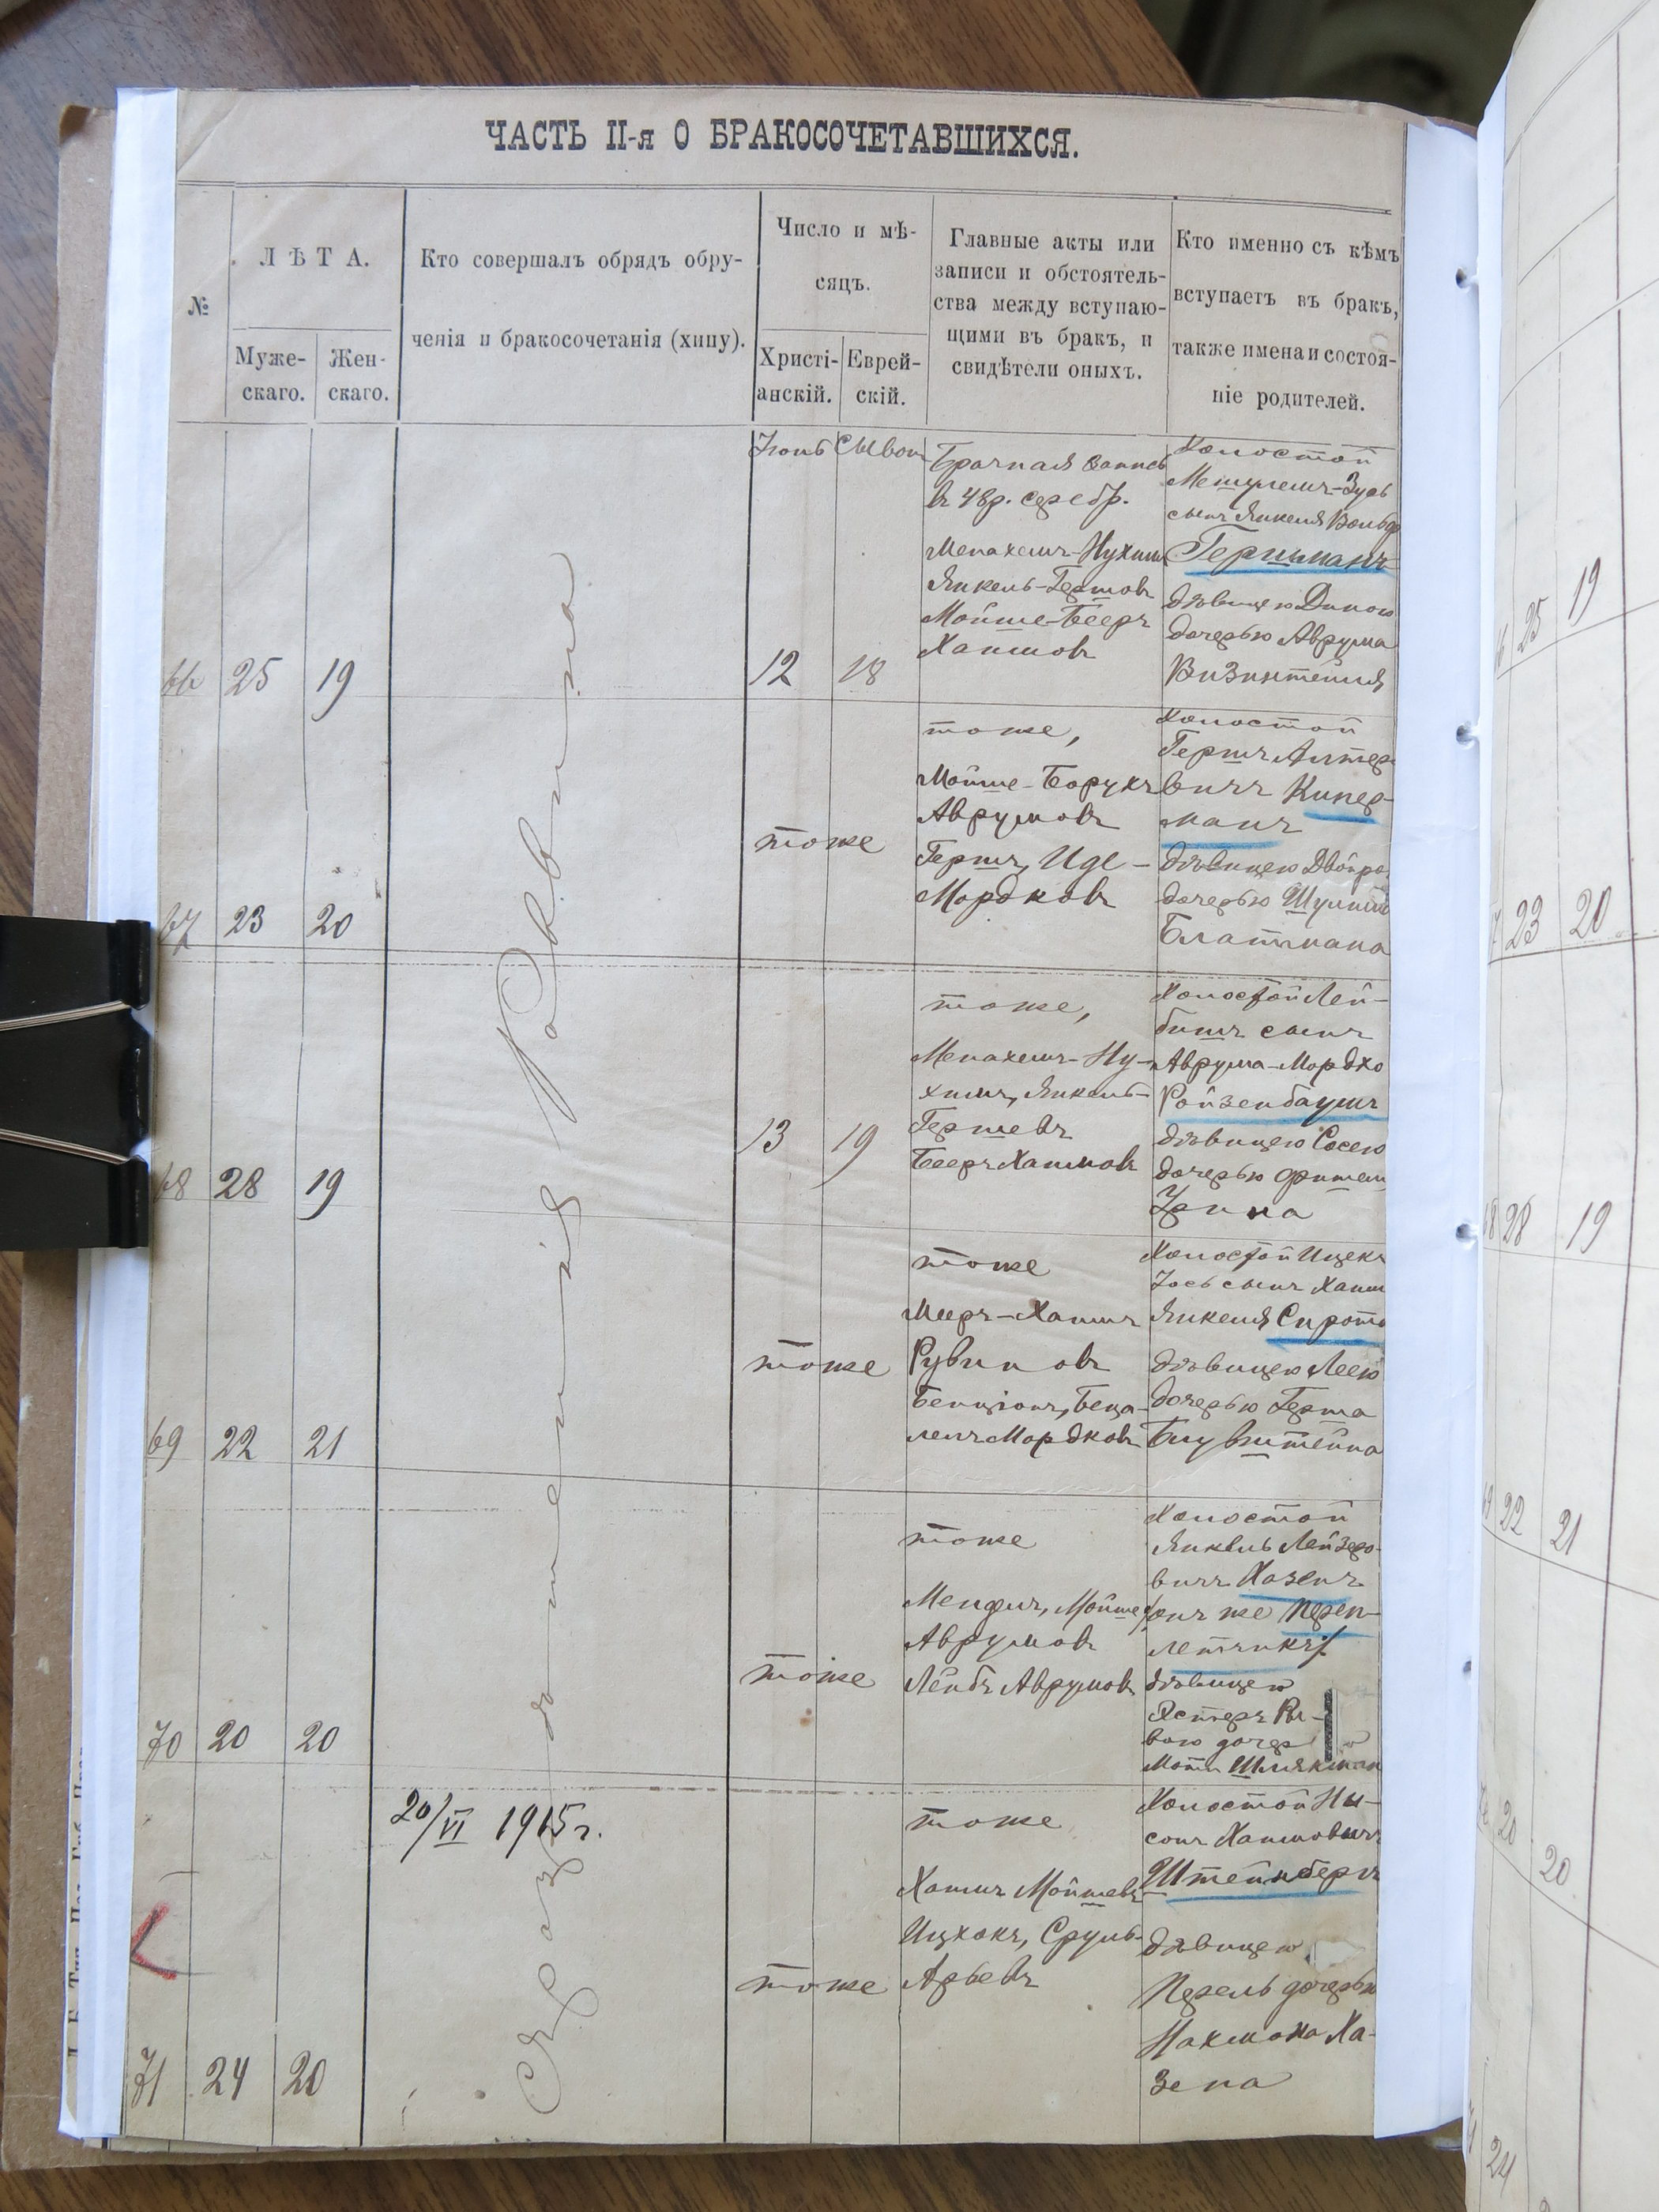 ЧАСТЬ II-я О БРАКОСОЧЕТАВШИХСЯ.
№
ЛѢТА.
Муже-
скаго.
Жен-
скаго.
Кто совершалъ обрядъ обру-
ченія и бракосочетанія (хипу).
Число и мѣ-
сяцъ.
Христі-
анскій.
Еврей-
скій.
Главные акты или
записи и обстоятель-
ства между вступаю-
щими въ бракъ, и
свидѣтели оныхъ.
Кто именно съ кѣмъ
вступаетъ въ бракъ,
также имена и состоя-
ніе родителей.
Раввина
66
25
19
Іюнь
12
Сыvon
18
Брачная запись
въ 48 р. серебр.
Менахемъ-Нухимъ
Янкель-Гершовъ
Мойше-Бееръ
Хаимовъ
Холостой
Мешулемъ-Зусь
сынъ Янкеля Вольфа
Гершманъ
дѣвицею Диною
дочерью Аврума
67
23
20
тоже
тоже,
Мойше-Борухъ
Аврумовъ
Гершъ, Иде-
Мордковъ
Холостой
Гершъ Алтер-
вичъ Кипер-
манъ
дѣвицею Двойро
дочерью
Блатмана
68
28
19
13
19
тоже,
Менахемъ-Ну-
химъ, Янкель-
Гершевъ
Бееръ Хаимовъ
Холостой Лей-
бишъ сынъ
Аврума-Мордхо
Ройзенбаумъ
дѣвицею Сосею
дочерью
69
22
21
тоже
тоже
Мееръ-Хаимъ
Рувиновъ
Бенціонъ, Беца-
лелъ Мордковъ
Холостой Ицекъ
Іось сынъ Хаим
Янкеля Сирота
дѣвицею Леею
дочерью Герша
70
20
20
тоже
тоже
Мендель, Мойше
Аврумовъ
Лейбъ Аврумовъ
Холостой
Янкель Лейзеро-
вичъ Хазенъ
/онъ же Переп-
летчикъ/
дѣвицею
Эстеръ Ры-
вою дочер
Моти Шлякман
20/VI 1915 г.
71
24
20
тоже
тоже
Хаимъ Мойшевъ
Ицхокъ, Сруль-
Арьевъ
Холостой Ны-
сонъ Хаимовичъ
Штейнбергъ
дѣвицею
Перель дочерью
Нахмана Ха-
зена
25
19
23
20
28
19
22
21
20
20
24